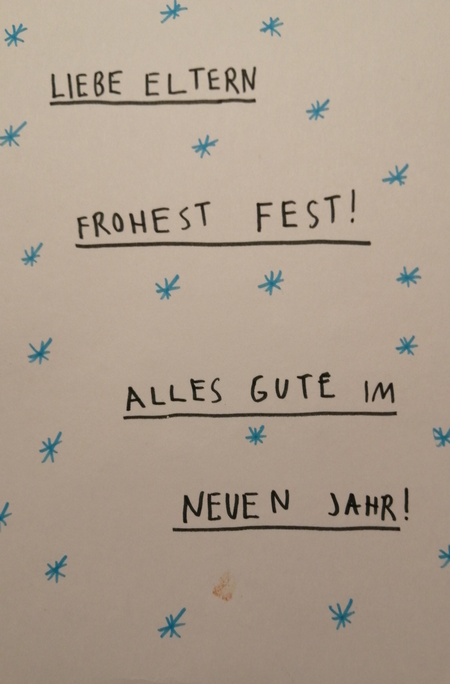 LIEBE ELTERN
FROHEST FEST!
ALLES GUTE IM
NEUEN JAHR!